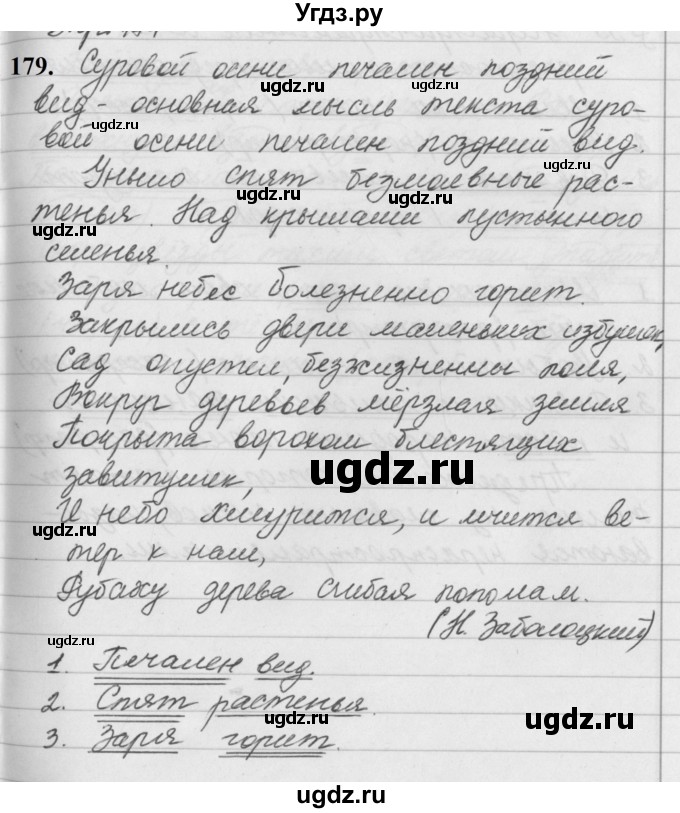 Угдз.ру
179. Суровой осени печален поздний
вид - основная мысль текста суро-
вой осени печален поздний вид.
Уныло спят безмолвные рас-
тенья. Над крышами пустынного
селенья
Заря небес болезненно горит.
Закрылись двери маленьких избушек,
Сад опустел, безжизненны поля,
Вокруг деревьев мёрзлая земля
Покрыта ворохом блестящих
завитушек,
И небо хмурится, и мчится ве-
тер к нам,
Рубаху дерева сгибая пополам.
(Н. Заболоцкий)
1. Печален вид.
2. Спят растенья.
3. Заря горит.
ugdz.ru
ugdz.ru
ugdz.ru
ugdz.ru
ugdz.ru
ugdz.ru
ugdz.ru
ugdz.ru
ugdz.ru
ugdz.ru
ugdz.ru
ugdz.ru
ugdz.ru
ugdz.ru